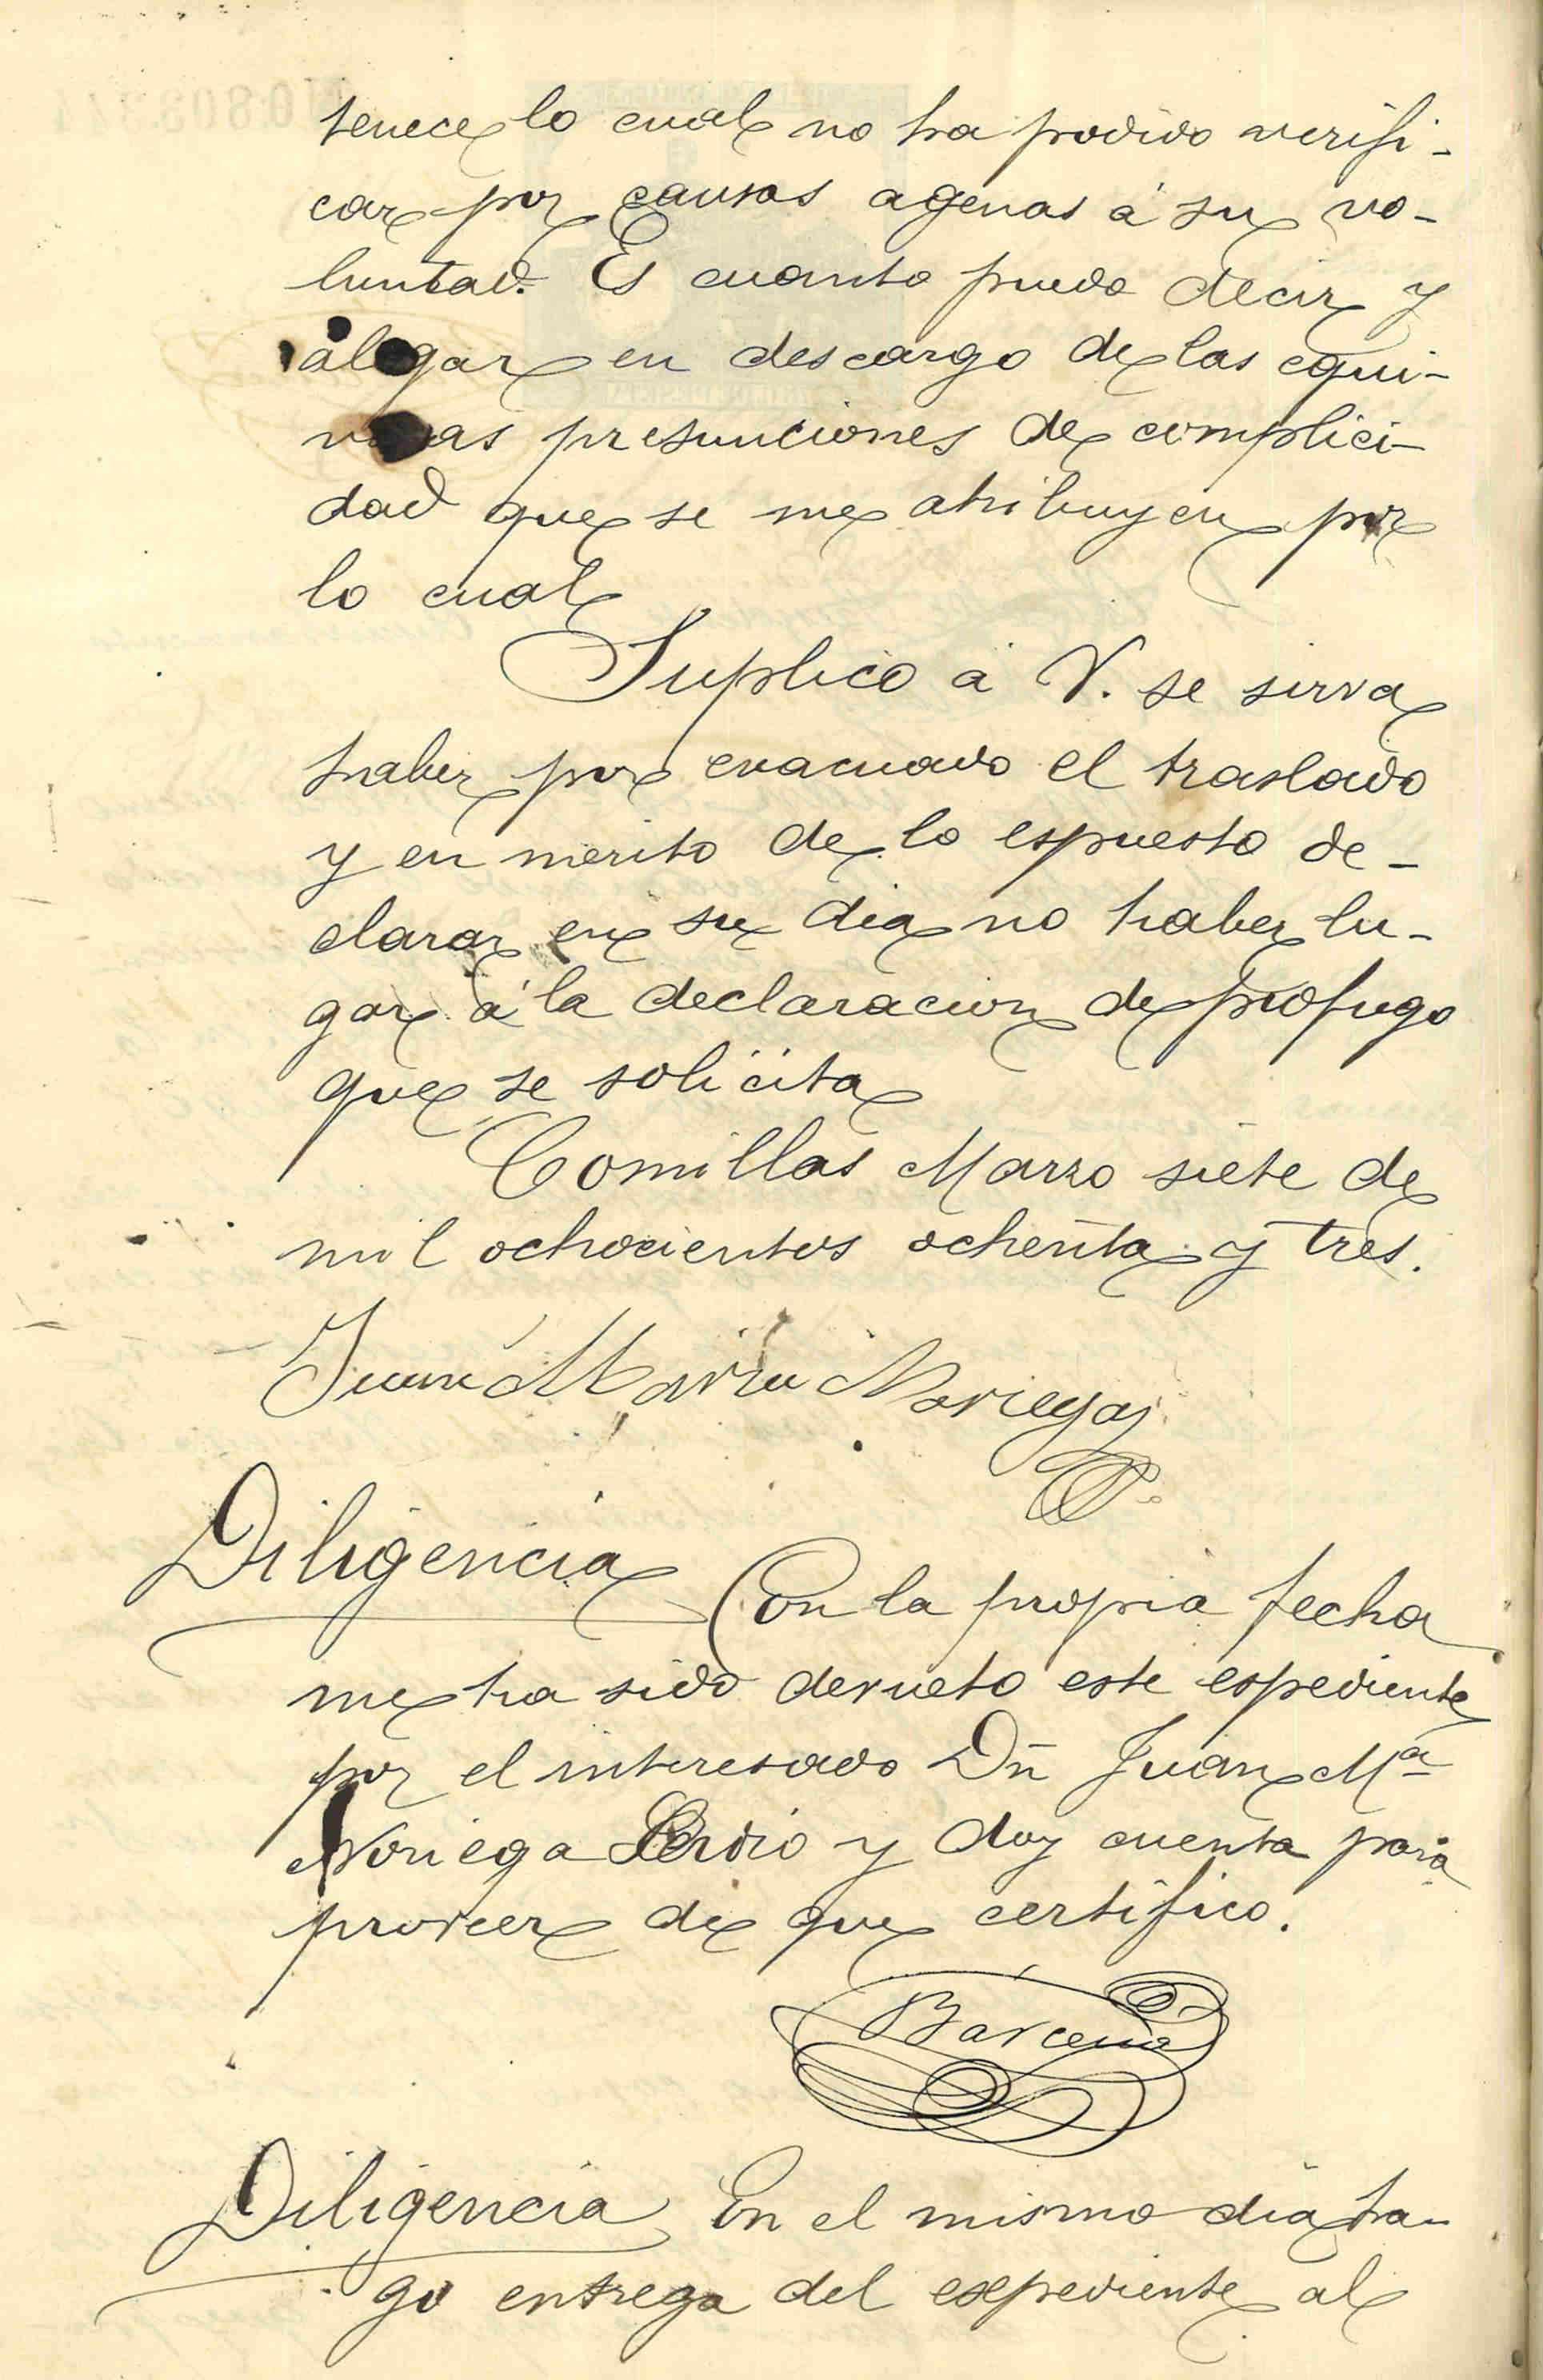 tenece lo cual no ha podido verifi-
car por causas agenas á su vo-
luntad. Es cuanto puedo decir y
alegar en descargo de las equi-
vocas presunciones de complici-
dad que se me atribuyen por
lo cual
Suplico á V. se sirva
haber por evacuado el traslado
y en merito de lo espuesto de-
clarar en su dia no haber lu-
gar á la declaracion de prófugo
que se solicita
Comillas Marzo siete de
mil ochocientos ochenta y tres.
Juan Maria Noriega
Diligencia En la propia fecha
me ha sido devuelto este espediente
por el interesado Dn Juan Mª
Noriega y doy cuenta para
proveer de que certifico.
Barcena
Diligencia En el mismo dia ha-
go entrega del expediente al